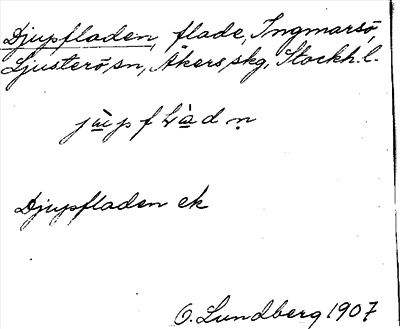 Djupfladen, flade, Ingmarsö,
Ljusterö, sn, Åkers, skg, Stockh. l.
Djupfladen ek
O. Lundberg 1907